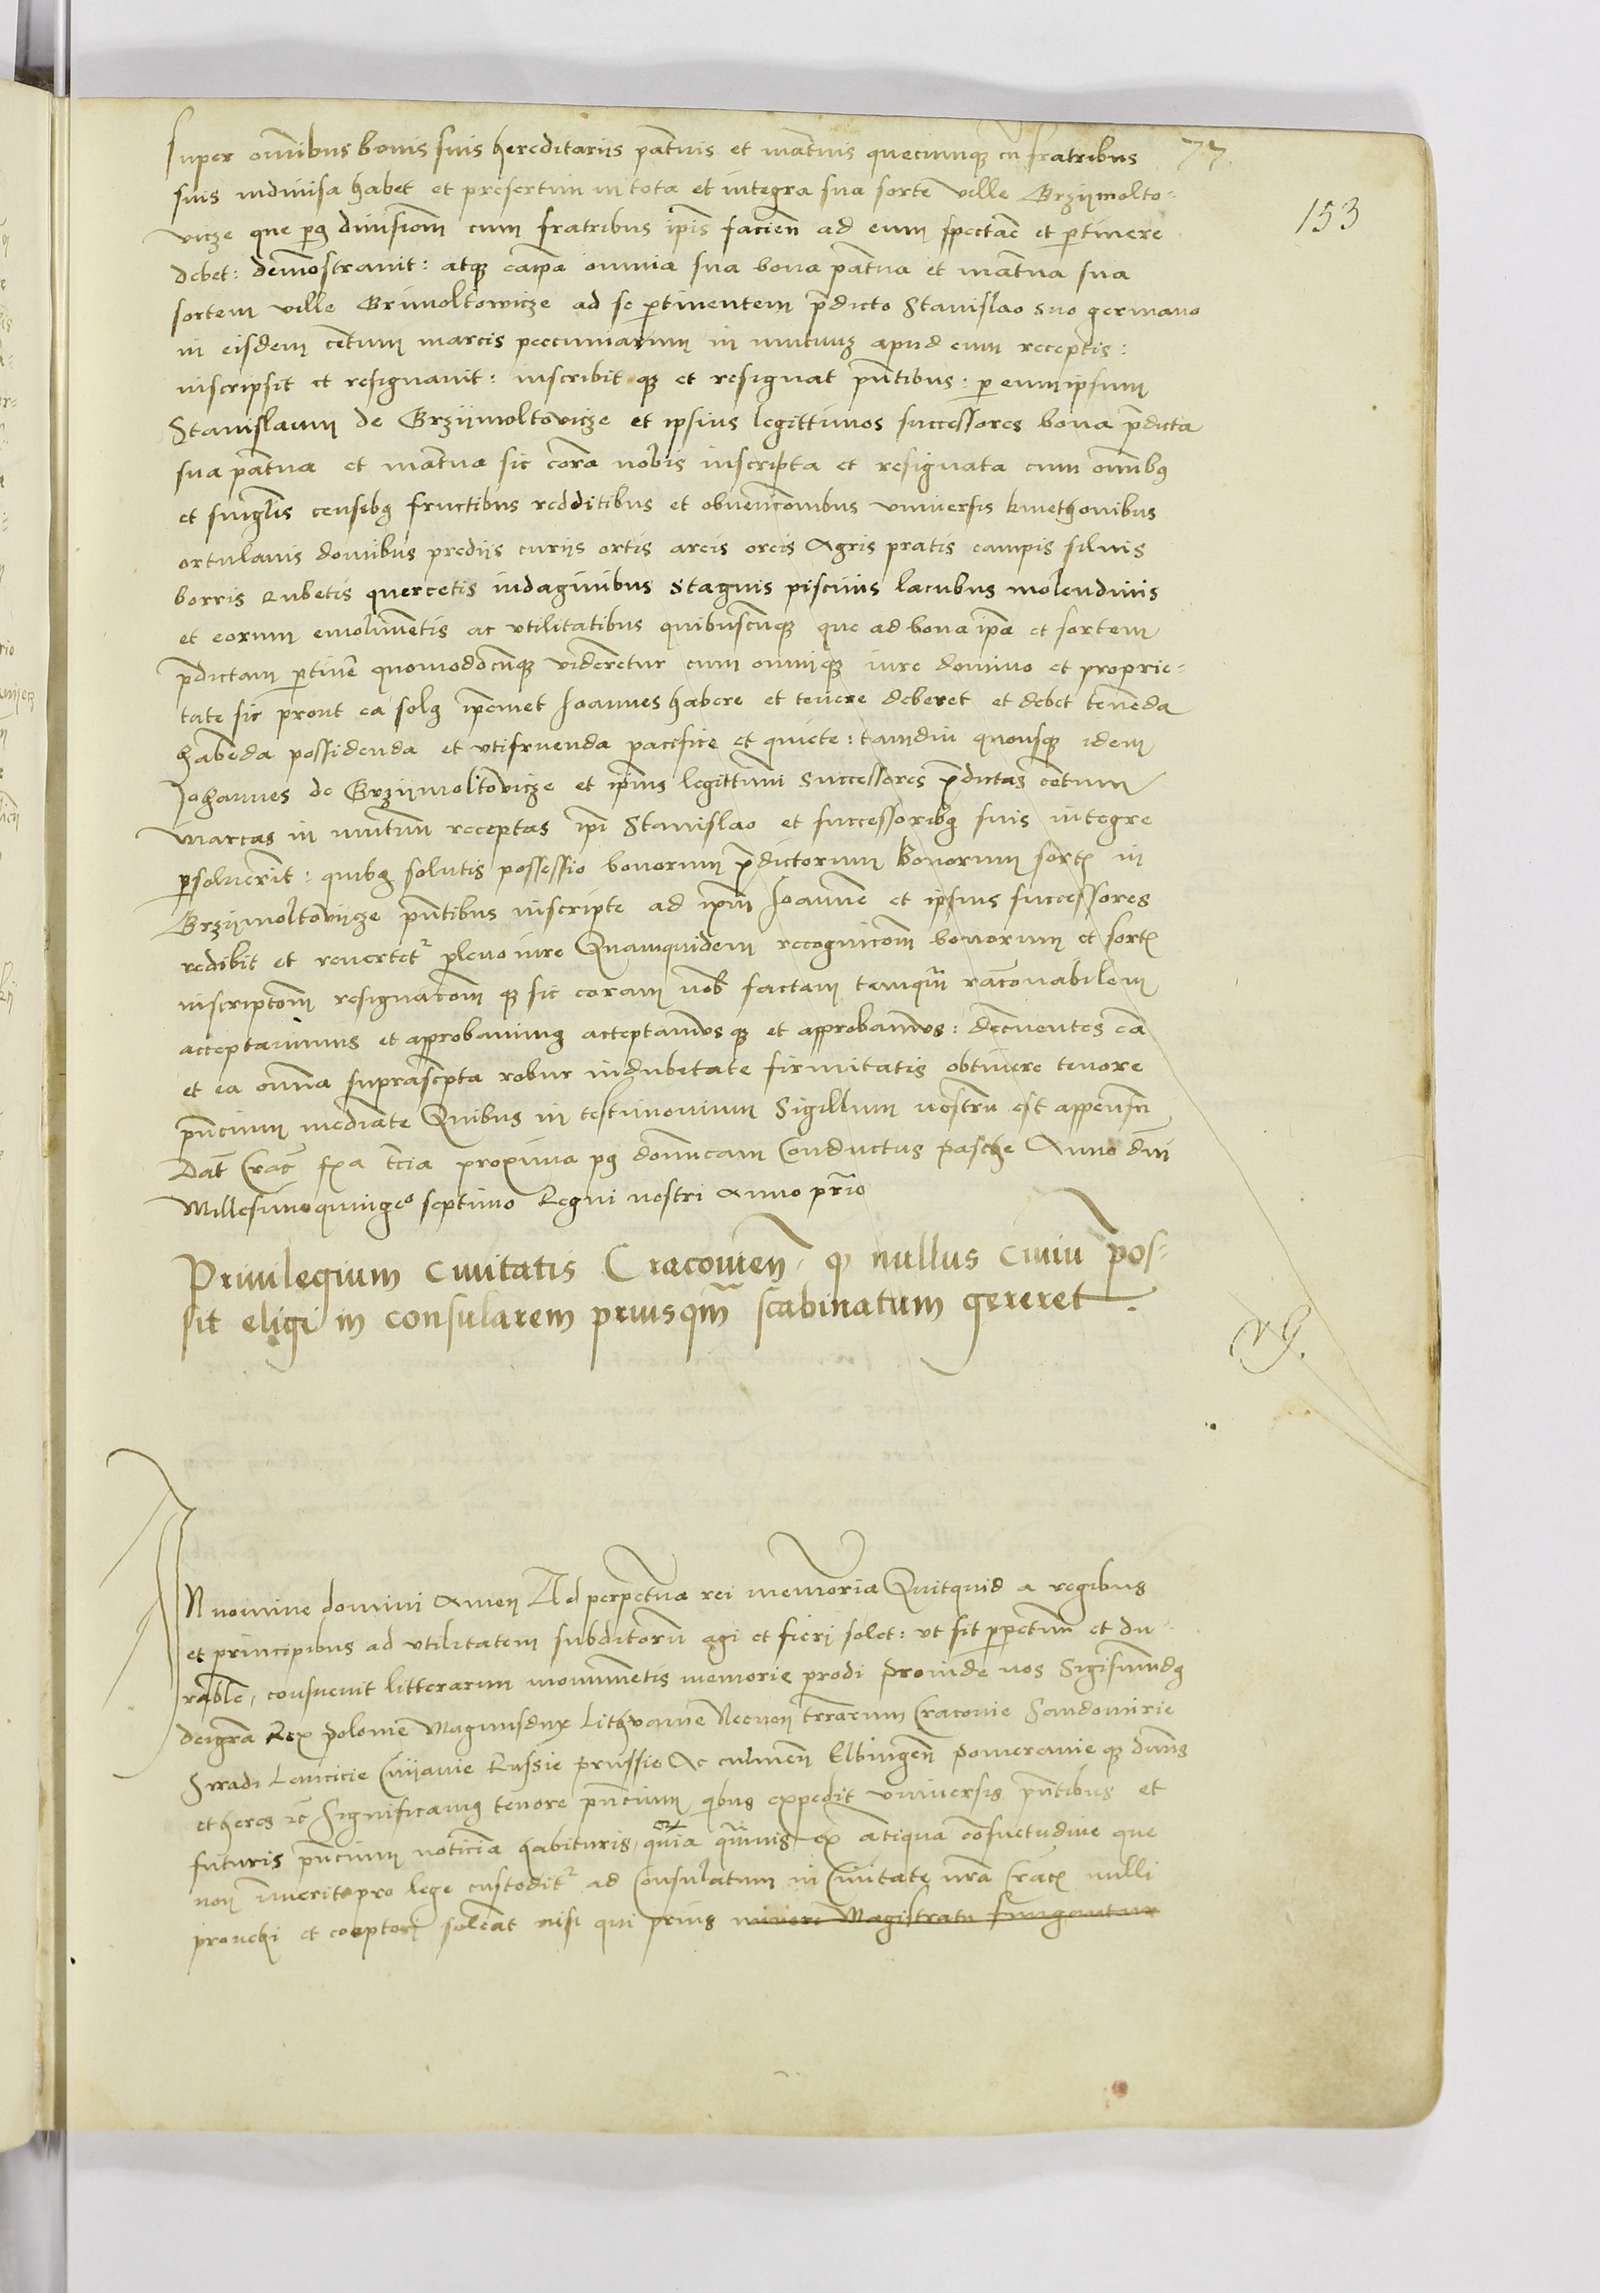 super omnibus bonis suis hereditariis pat̃nis et mat̃nis quecumqȝ cũ fratribus 77
suis indivisa habet et presertim in tota et integra sua sorte ville Grzijmolto-
vicze que pꝰ divisiom̃ cum fratribus ip̃is facień ad eum spectar̃e et p̃tinere 153
debet: demõstravit: atqȝ eaip̃a omnia sua bona pat̃na et mat̃na sua
sortem ville Grimoltowicze ad se p̃tinentem p̃dicto Stanislao suo germano
in eisdem cẽtum marcis peccuniarum in mutuuȝ apud eum receptis:
inscripsit et resignavit: inscribit qȝ et resignat p̃ntibus: p eum ipsum
Stanislaum de Grzijmoltovicze et ipsius legittimos successores bona p̃dicta
sua pat̃na et mat̃na sic corã nobis inscripta et resignata cum om̃ibꝰ
et singl̃is censibꝰ fructibus redditibus et obvenc̃onibus universis kmethonibus
ortulanis domibus prediis curiis ortis areis oreis Agris pratis campis silvis
borris Rubetis quercetis indaginibus Stagnis piscinis lacubus molendinis
et eorum emolimẽtis ac utilitatibus quibuscũqȝ que ad bona ip̃a et sortem
p̃dictam p̃tinẽ quomodocũqȝ videretur cum omniqȝ iure dominio et proprie-
tate sic prout ea solꝰ ip̃emet Joannes habere et tenere deberet et debet tenẽda
habẽda possidenda et utifruenda pacifice et quiete: tamdiu quousqȝ idem
Johannes de Grzijmoltovicze et ip̃ius legittimi Successores p̃dictas cẽtum
marcas in mutuũ receptas ip̃i Stanislao et successoribꝰ suis integre
p̃solverit: quibꝰ solutis possessio bonorum p̃dictorum bonorum sort̃ in
Grzijmoltovijcze p̃ntibus inscripte ad ip̃m Joannẽ et ipsius successores
redibit et revertet̃ pleno iure Quamquidem recognicom̃ bonorum et sort̃
inscriptom̃ resignatom̃ qȝ sic coram nob̃ factam tamqũ rac̃onabilem
acceptavimus et approbavimꝰ acceptamus qȝ et approbamus: decr̃nentes eã
et ea om̃ia suprascr̃pta robur indubitate firmitatis obtinere tenore
p̃ncium mediãte Quibus in testimonium Sigillum nostrũ est appensũ
Dat̃ Crac̃ f̃ia t̃cia proxima pꝰ domĩcam Conductus pasche Anno dñi
Millesimoquinge͂o septimo Regni nostri Anno pr̃io
Privilegium Civitatis Cracovień qȝ nullus Civiũ pos-
sit eligi in consularem priusqm̃ scabinatum gereret
IN nomine domini Amen Ad perpetuã rei memoriã Quitquid a regibus
et principibus ad utilitatem subditorũ agi et fieri solet: ut sit p̃petuũ et du-
rabile, consuevit litterarum monumẽtis memorie prodi Proinde nos Sigismũdꝰ
deigrã Rex Polonie Magnusdux Lithvanie Necnon terrarum Cracovie Sandomirie
Siradi Lancicie Cuijavie Russie prussie Ac culmeñ Elbingeñ Pomeranie qȝ dñus
et heres ꝛc̃ Significamꝰ tenore p̃ncium qbus expedit universis p̃ntibus et
futuris p̃ncium noticiã habituris, quia quãvis ex ãtiqua cõsuetudine que
non ĩmerito pro lege custodit̃ ad Consulatum in Civitate nr̃a Crac̃ nulli
provehi et cooptari soleãt nisi qui prius minori Magistratu fungantur